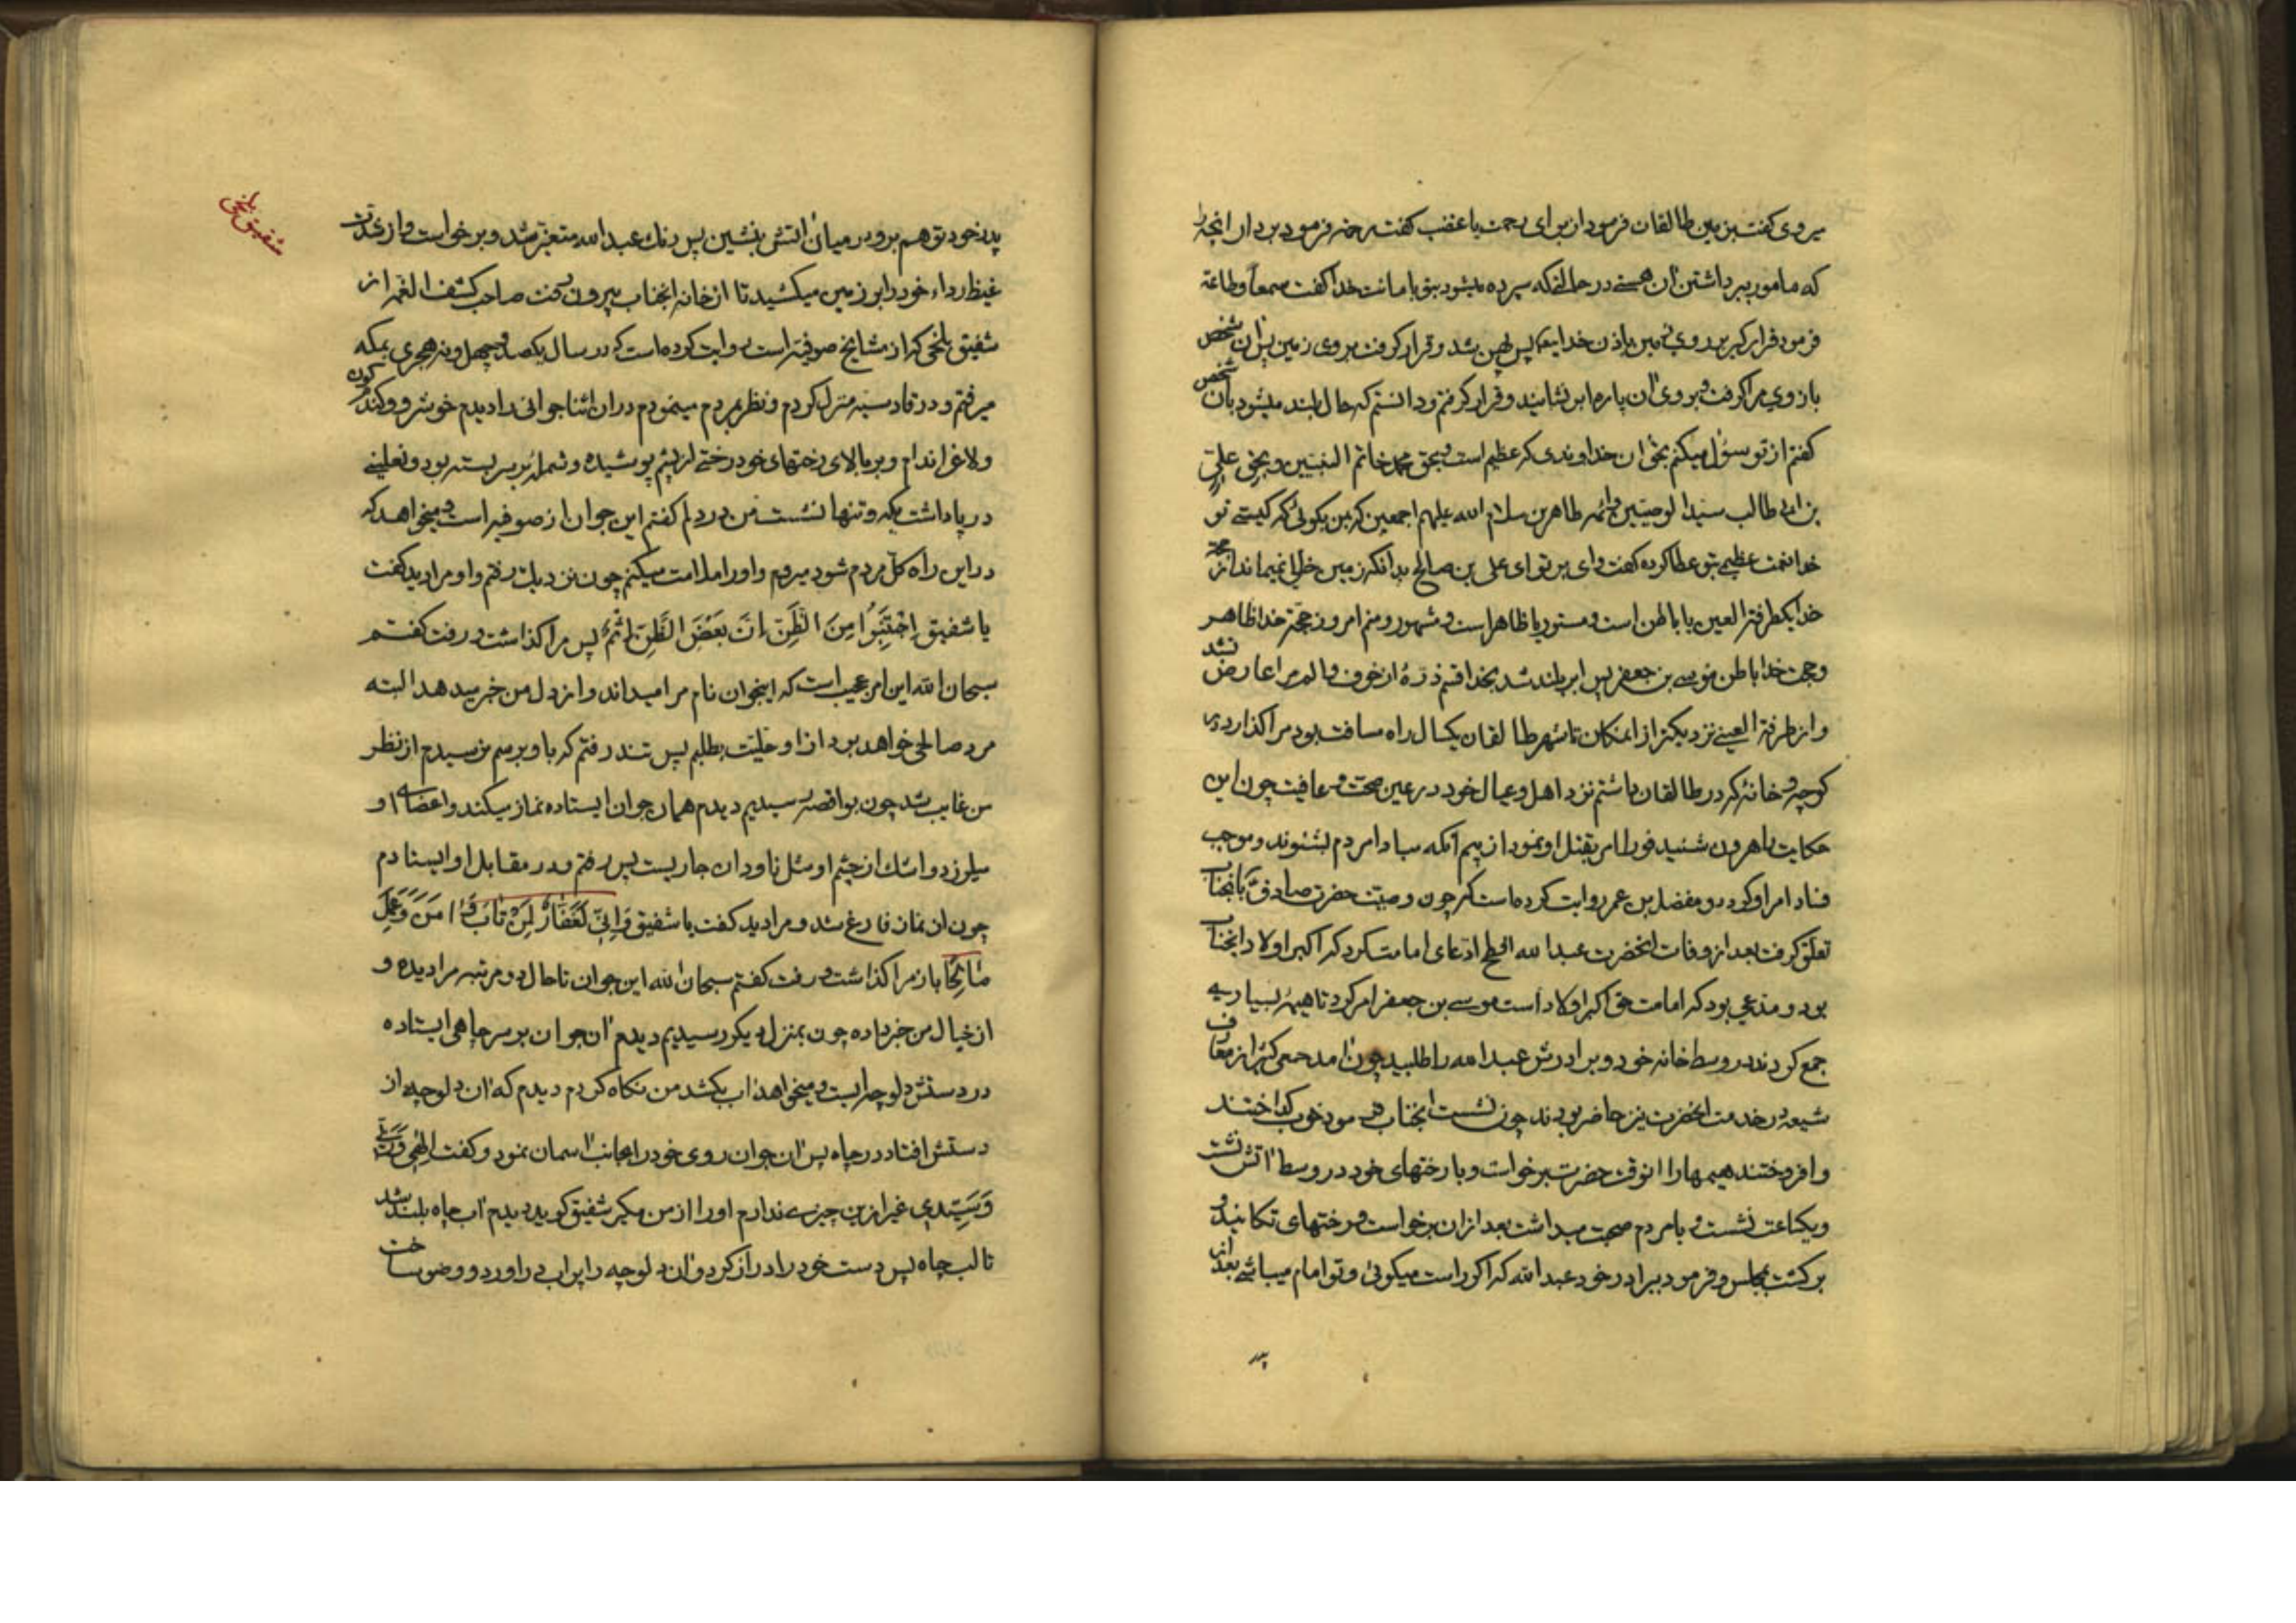 میروی گفت بزمین طالقان فرمود از برای رحمت یا غضب گفت رحمة فرمود بردار آنچه را
که مامور ببرداشتن آن هستی در حالتیکه سپرده میشود بتو بامانت خدا گفت سمعاً و طاعة
فرمود قرار گیر بر روی زمین باذن خدایتعالی پس پهن شد و قرار گرفت بروی زمین پس آن شخص
بازوی مرا گرفت و بروی آن پاره ابر نشانید و قرار گرفتم و دانستم که حال بلند میشود بآن شخص
گفتم از تو سؤال میکنم بحق آن خداوندی که عظیم است و بحق محمد خاتم النبیین و بحق علی
بن ابی طالب سید الوصیین و ائمه طاهرین سلام الله علیهم اجمعین که بمن بگوئی که کیستی تو
خدا نعمت عظیمی بتو عطا کرده گفت وای بر تو ای علی بن صالح بدانکه زمین خالی نمیماند از حجة
خدا یکطرفة العین یا باطن است و مستور یا ظاهر است و مشهور و منم امروز حجّة خدا ظاهر
و حجت خدا باطن موسی بن جعفر پس ابر بلند شد بخدا قسم ذرّۀ از خوف و الم مرا عارض نشد
و از طرفة العینی نزدیکتر از امکان تا شهر طالقان یکسال راه مسافت بود مرا گذارد در
کوچه و خانۀ که در طالقان داشتم نزد اهل و عیال خود در عین صحت و عافیت چون این
حکایت را هرون شنید فوراً امر بقتل او نمود از بیم آنکه مبادا مردم بشنوند و موجب
فساد امر او گردد و مفضل بن عمر روایت کرده است که چون وصیت حضرت صادق بآنجناب
تعلق گرفت بعد از وفات آنحضرت عبد الله افطح ادعای امامت کرد که اکبر اولاد آنجناب
بود و مدعی بود که امامت حق اکبر اولاد است موسی بن جعفر امر کرد تا هیمۀ بسیاری
جمع کردند در وسط خانه خود و برادرش عبد الله را طلبید چون آمد جمعی کثیر از معارف
شیعه در خدمت آنحضرت نیز حاضر بودند چون نشست آنجناب فرمود خوب گداختند
و افروختند هیمها را آنوقت حضرت برخواست و با رختهای خود در وسط آتش نشست
و یکساعت نشست و با مردم صحبت میداشت بعد از آن برخواست و رختهای تکانید و
برگشت بمجلس و فرمود ببرادر خود عبد الله که اگر راست میگوئی و تو امام میباشی بعد از
پدر
پدر خود تو هم برو در میان آتش بنشین پس رنگ عبد الله متغیر شد و برخواست و از شدت
غیظ رداء خود را بر زمین میکشید تا از خانه آنجناب بیرون رفت صاحب کشف الغمه از
شفیق بلخی که از مشایخ صوفیه است روایت کرده است که در سال یکصد و چهل و نه هجری بمکه
میرفتم و در قادسیه منزل کردم و نظر بمردم مینمودم در آن اثنا جوانی را دیدم خوشرو و گندم گون
و لاغر اندام و بر بالای رختهای خود رختی از پشم پوشیده و شملۀ بر سر بسته بود و نعلینی
در پا داشت یکه و تنها نشست من در دلم گفتم این جوان از صوفیه است و میخواهد که
در این راه کلّ مردم شود میروم و او را ملامت میکنم چون نزدیک رفتم و او مرا دید گفت
یا شفیق اِجْتَنِبُوا مِنَ الظَّنِّ اِنَّ بَعْضَ الظَّنِّ اِثْمٌ پس مرا گذاشت و رفت گفتم
سبحان الله این امر عجیب است که اینجوان نام مرا میداند و از دل من خبر میدهد البته
مرد صالحی خواهد بود از او حلیّت بطلبم پس تند رفتم که باو برسم نرسیدم از نظر
من غایب شد چون بواقصه رسیدیم دیدم همان جوان ایستاده نماز میکند و اعضای او
میلرزد و اشک از چشم او مثل ناودان جاریست پس رفتم و در مقابل او ایستادم
چون از نماز فارغ شد و مرا دید گفت یا شفیق وَاِنِّی لَغَفَّارٌ لِمَنْ تَابَ وَ اٰمَنَ وَعَمِلَ
صٰالِحًا باز مرا گذاشت و رفت گفتم سبحان الله این جوان تا حال دو مرتبه مرا دیده و
از خیال من خبر داده چون بمنزل دیگر رسیدیم دیدم آن جوان بر سر چاهی ایستاده
در دستش دلوچه ایست و میخواهد آب بکشد من نگاه کردم دیدم که آن دلوچه از
دستش افتاد در چاه پس آن جوان روی خود را بجانب آسمان نمود و گفت الهی وَ رَبّی
وَ سَیِّدی غیر از این چیزی ندارم او را از من مگیر شفیق گوید دیدم آب چاه بلند شد
تا لب چاه پس دست خود را دراز کرد و آن دلوچه را پر آب در آورد و وضو ساخت
شفیق بلخی